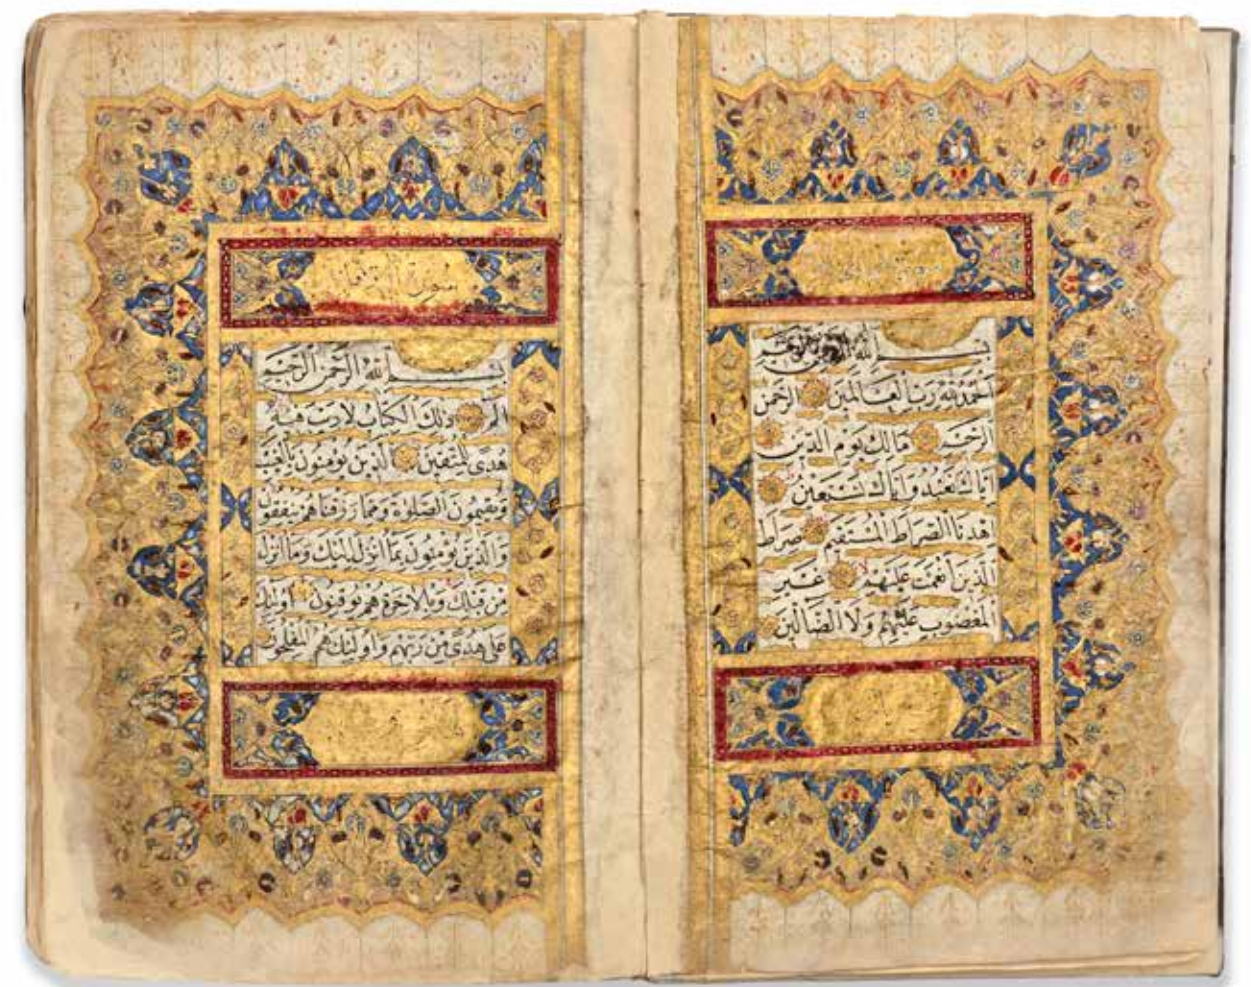 بِسْمِ اللهِ الرَّحْمٰنِ الرَّحِيمِ
اَلْحَمْدُ لِلّٰهِ رَبِّ الْعَالَمِينَ الرَّحْمٰنِ
الرَّحِيمِ مَالِكِ يَوْمِ الدِّينِ
اِيَّاكَ نَعْبُدُ وَاِيَّاكَ نَسْتَعِينُ
اِهْدِنَا الصِّرَاطَ الْمُسْتَقِيمَ صِرَاطَ
الَّذِينَ اَنْعَمْتَ عَلَيْهِمْ غَيْرِ
الْمَغْضُوبِ عَلَيْهِمْ وَلَا الضَّالِّينَ
سورة البقرة
بِسْمِ اللهِ الرَّحْمٰنِ الرَّحِيمِ
الٓمٓ ذٰلِكَ الْكِتَابُ لَا رَيْبَ فِيهِ
هُدًى لِلْمُتَّقِينَ اَلَّذِينَ يُؤْمِنُونَ بِالْغَيْبِ
وَيُقِيمُونَ الصَّلٰوةَ وَمِمَّا رَزَقْنَاهُمْ يُنْفِقُونَ
وَالَّذِينَ يُؤْمِنُونَ بِمَا اُنْزِلَ اِلَيْكَ وَمَا اُنْزِلَ
مِنْ قَبْلِكَ وَبِالْاٰخِرَةِ هُمْ يُوقِنُونَ اُولٰئِكَ
عَلٰى هُدًى مِنْ رَبِّهِمْ وَاُولٰئِكَ هُمُ الْمُفْلِحُونَ